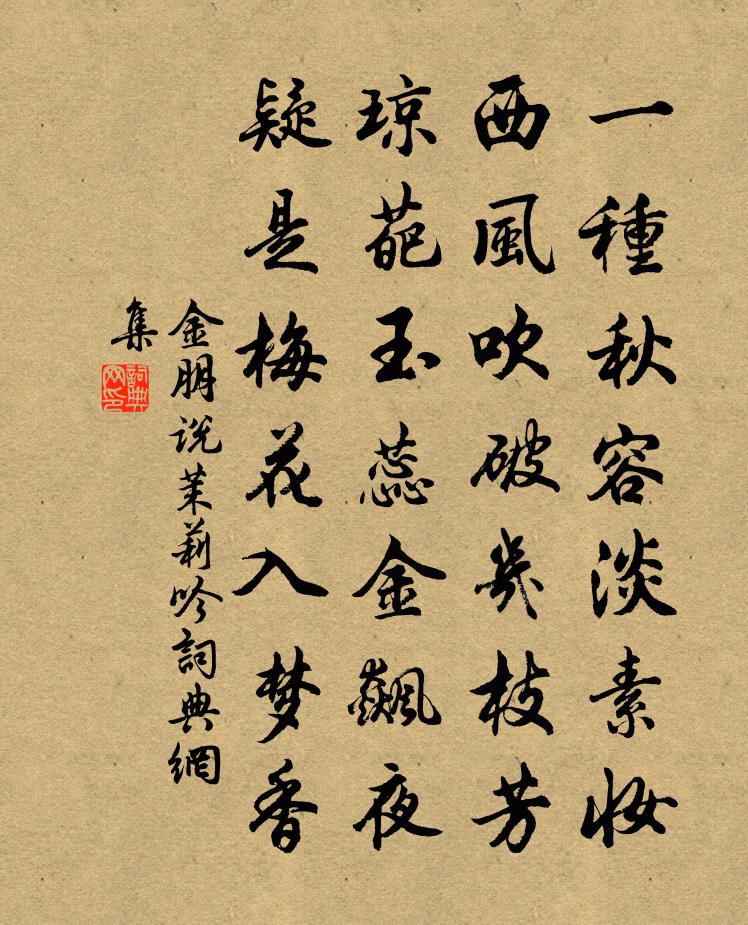 一種秋容淡素妝
西風吹破幾枝芳
琼葩玉蕊金飈夜
疑是梅花入梦香
金朋說茉莉吟詞典網
集
詞典
网印